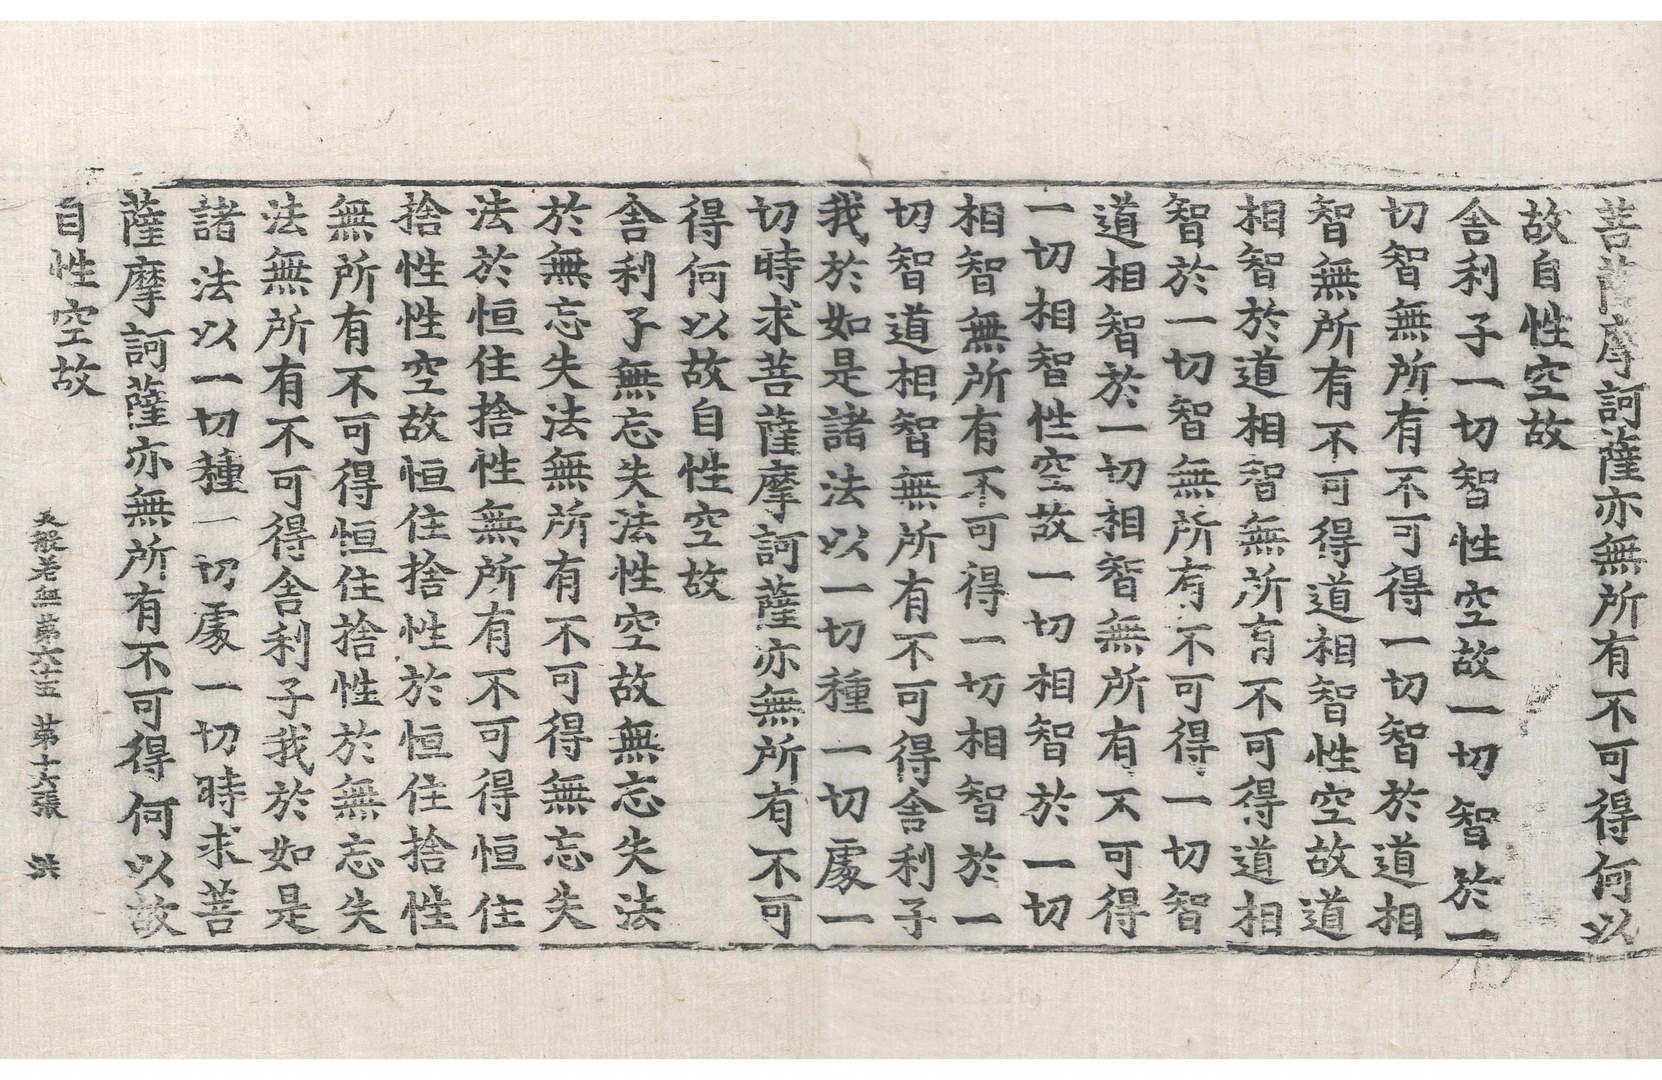 菩薩摩訶薩亦無所有不可得何以
故自性空故
舍利子一切智智性空故一切智智於一
切智智無所有不可得一切智智於道相
智無所有不可得道相智性空故道
相智於道相智無所有不可得道相
智於一切智智無所有不可得一切智
道相智於一切相智無所有不可得
一切相智性空故一切相智於一切
相智無所有不可得一切相智於一
切智道相智無所有不可得舍利子
我於如是諸法以一切種一切處一
切時求菩薩摩訶薩亦無所有不可
得何以故自性空故
舍利子無忘失法性空故無忘失法
於無忘失法無所有不可得無忘失
法於恒住捨性無所有不可得恒住
捨性性空故恒住捨性於恒住捨性
無所有不可得恒住捨性於無忘失
法無所有不可得舍利子我於如是
諸法以一切種一切處一切時求菩
薩摩訶薩亦無所有不可得何以故
自性空故
大般若經第六十五 第十六張 洪